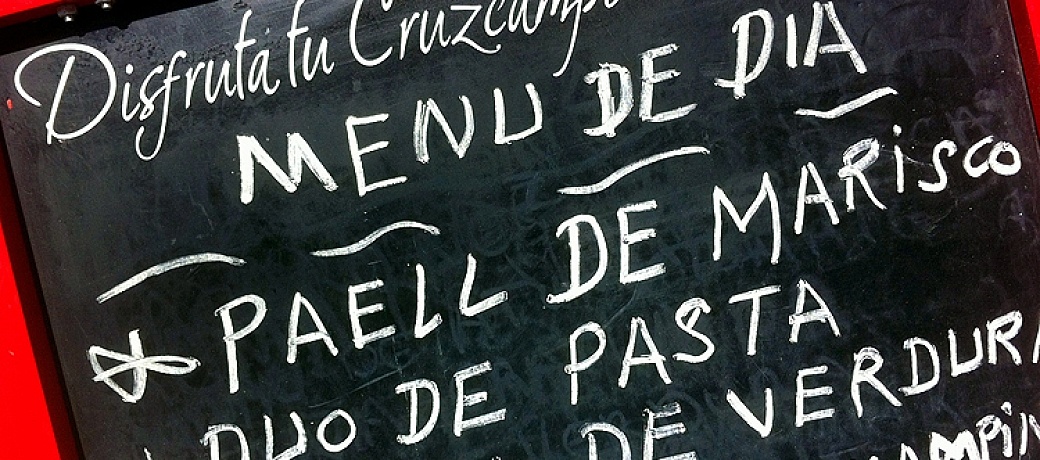 Disfruta tu Cruzcampo
MENU DE DIA
PAELL DE MARISCO
DUO DE PASTA
DE VERDURA